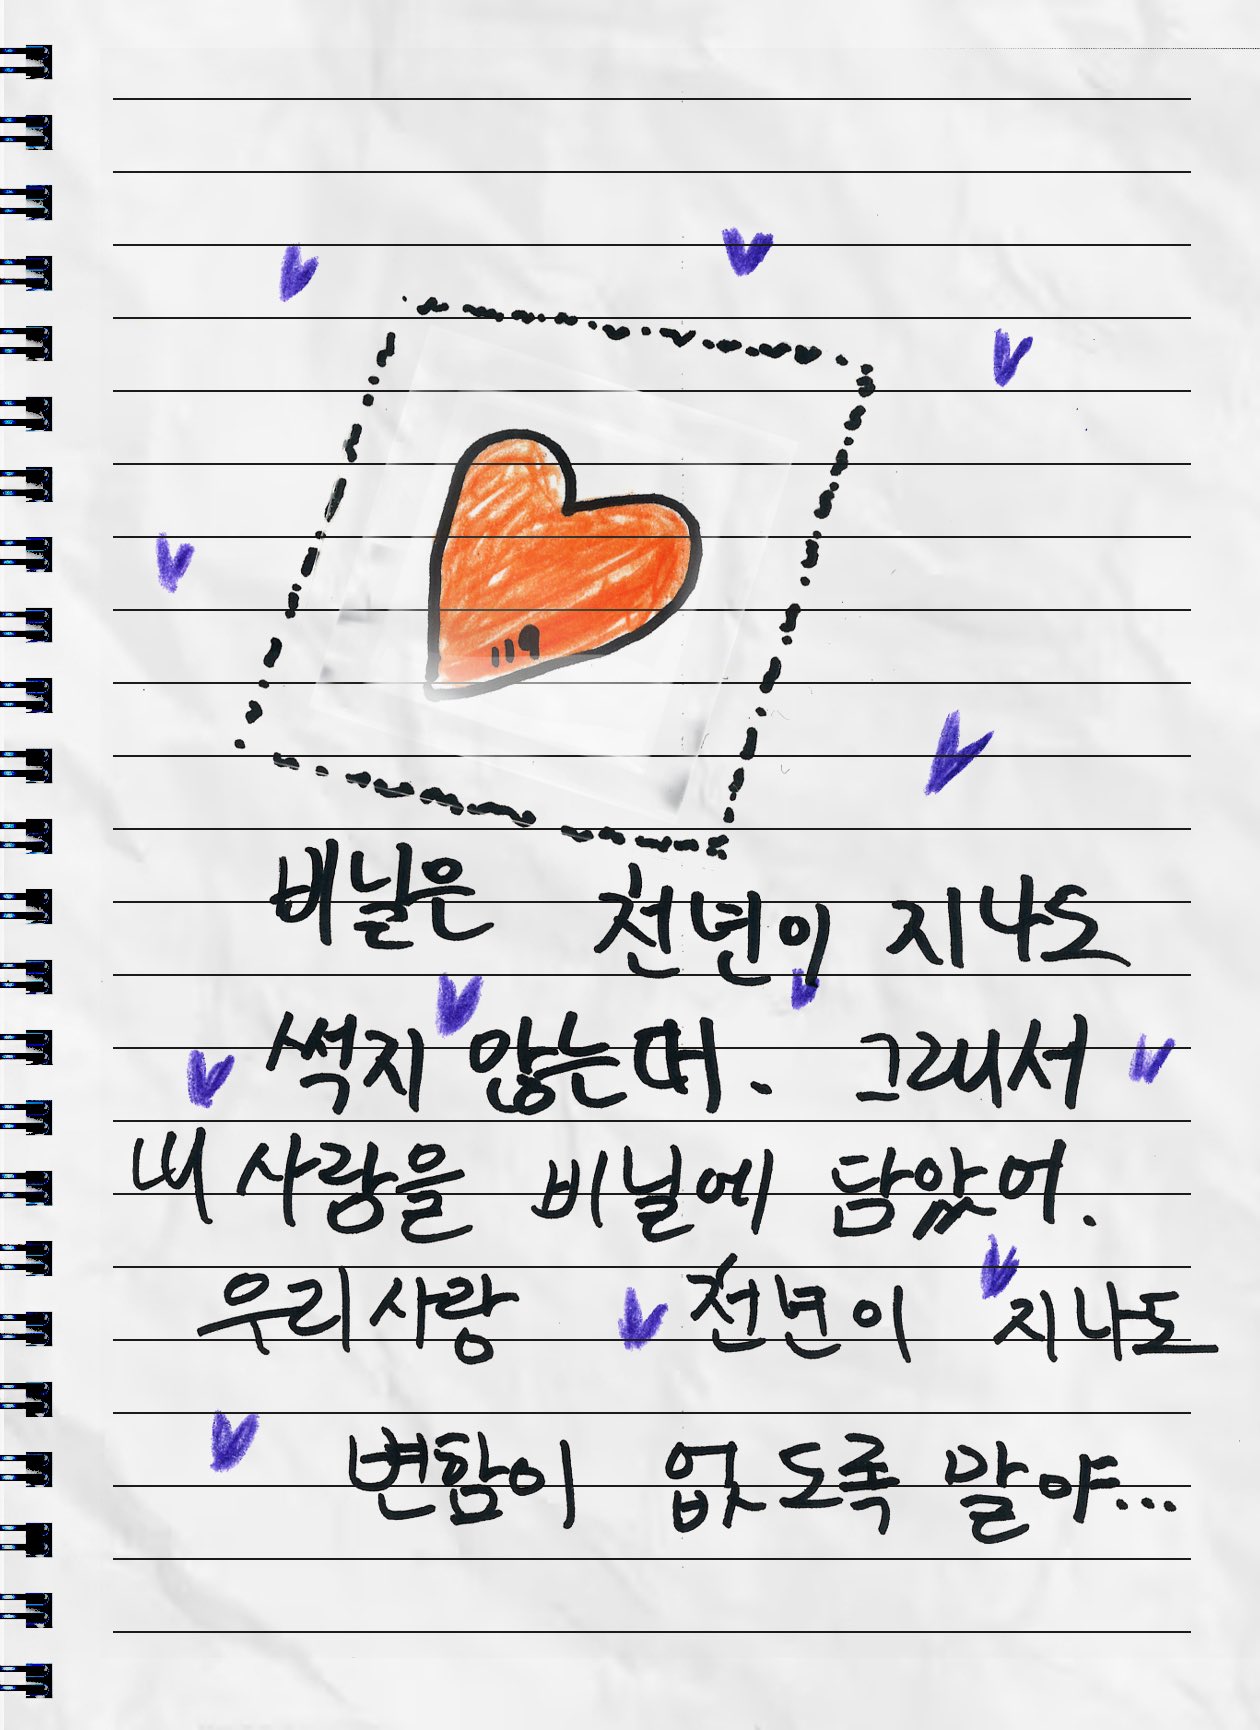 119
비닐은 천년이 지나도
썩지 않는대. 그래서
내 사랑을 비닐에 담았어.
우리 사랑 천년이 지나도
변함이 없도록 말야...